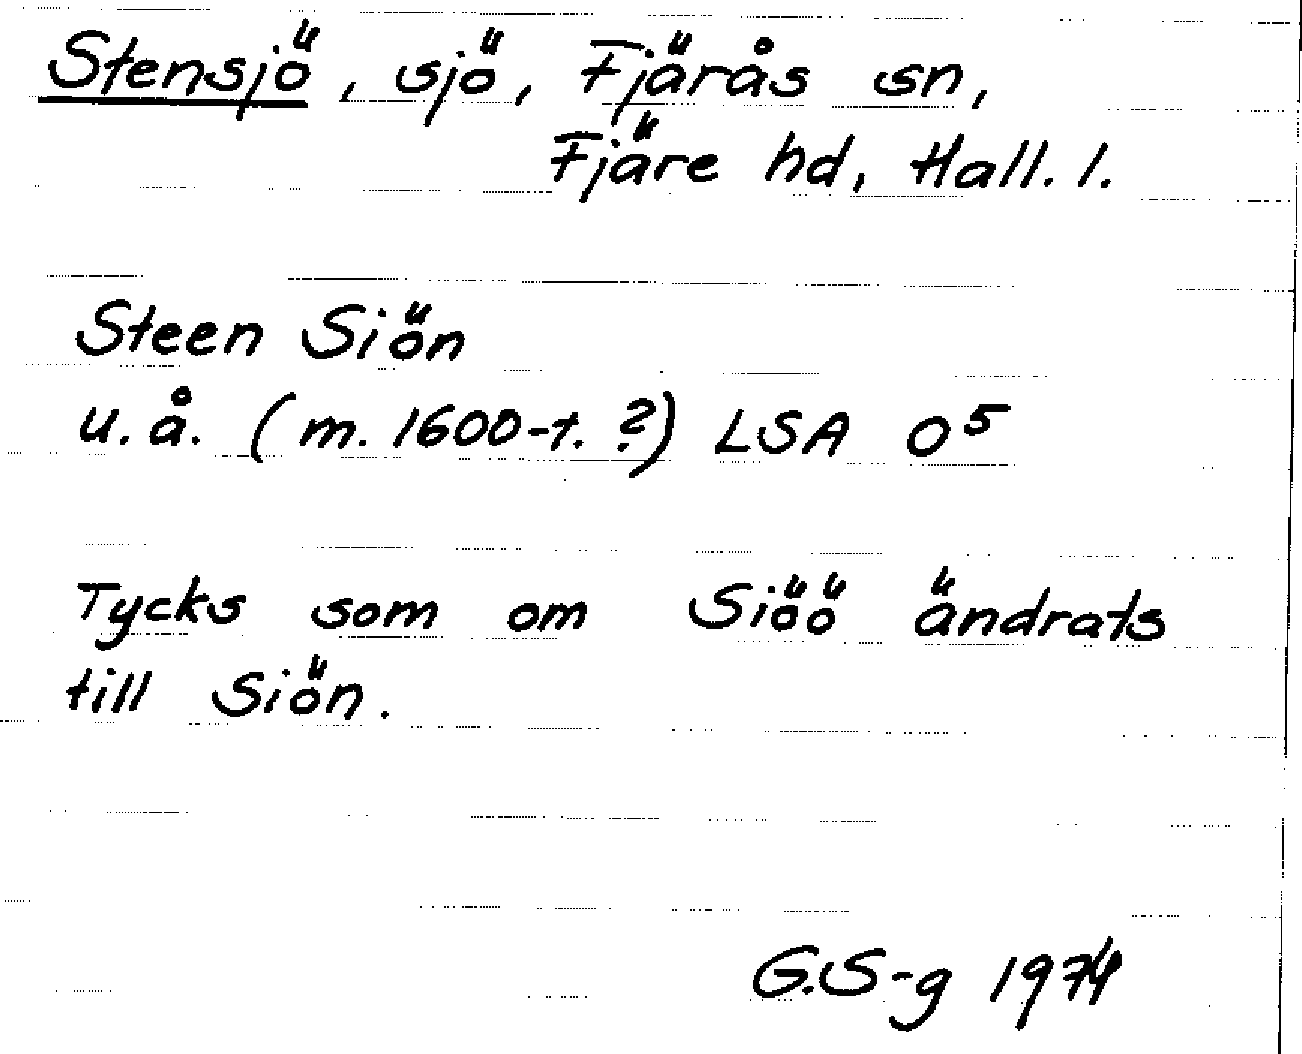 Stensjö, sjö, Fjärås sn,
Fjäre hd, Hall. l.
Steen Siön
u.å. (m. 1600-t. ?) LSA O⁵
Tycks som om Siöö ändrats
till Siön.
G.S-g 1974